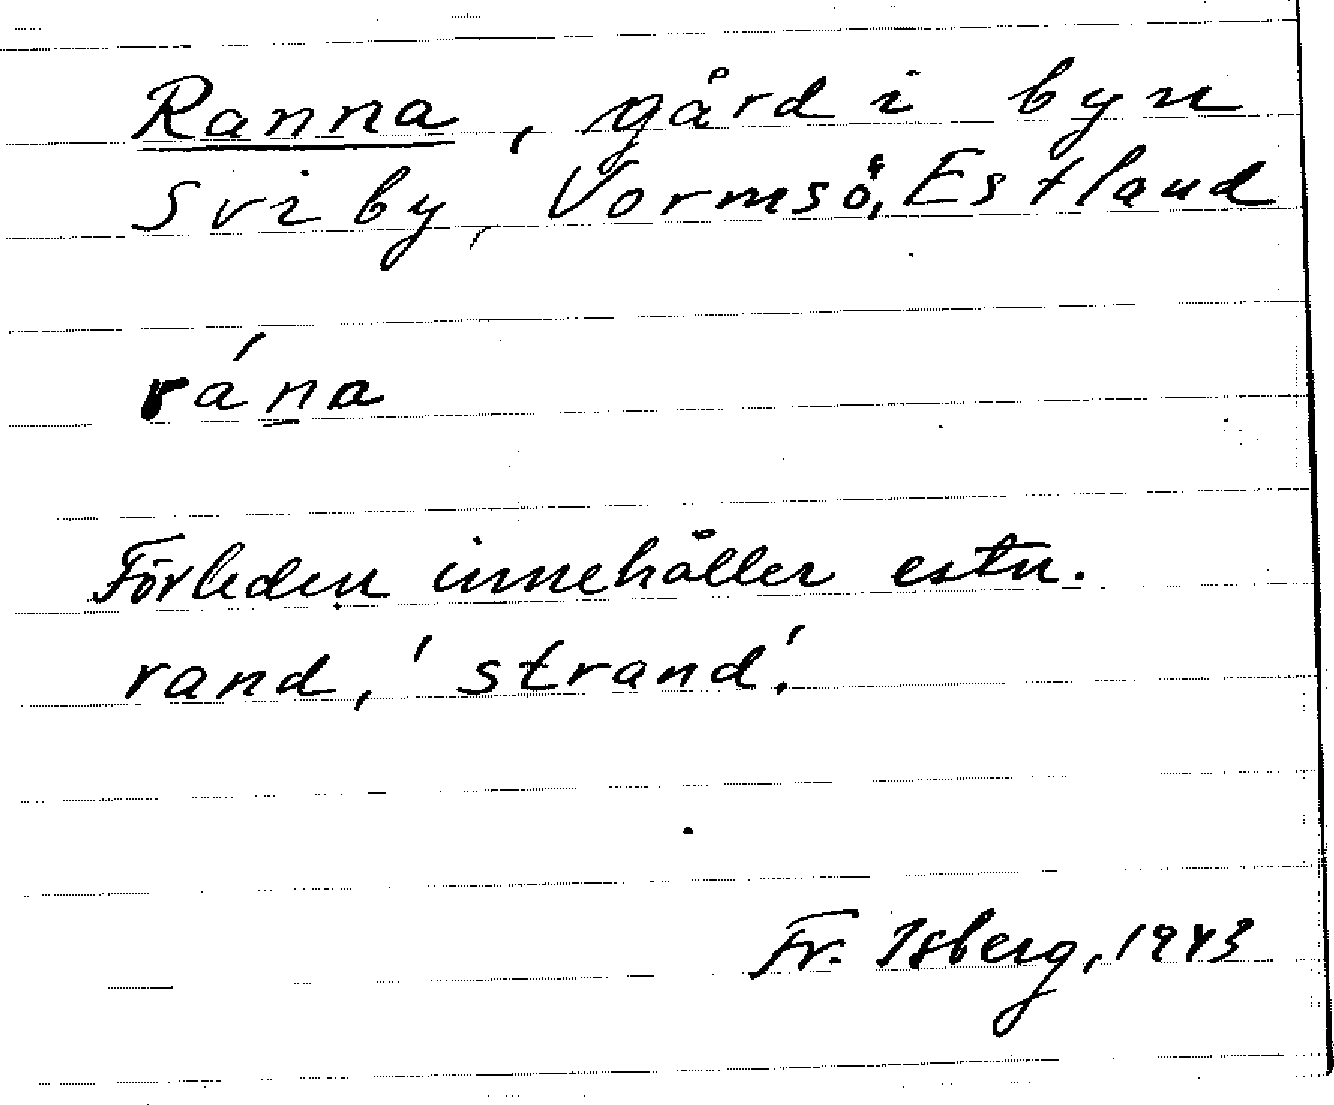 Ranna, gård i byn
Sviby, Vormsö, Estland
rána
Förleden innehåller estn.
rand, 'strand'.
Fr. Isberg, 1943